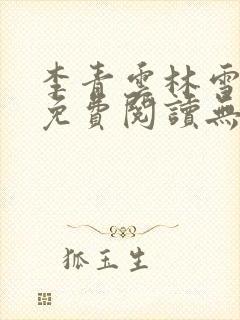 李青雲林雪
免費閱讀無
狐玉生